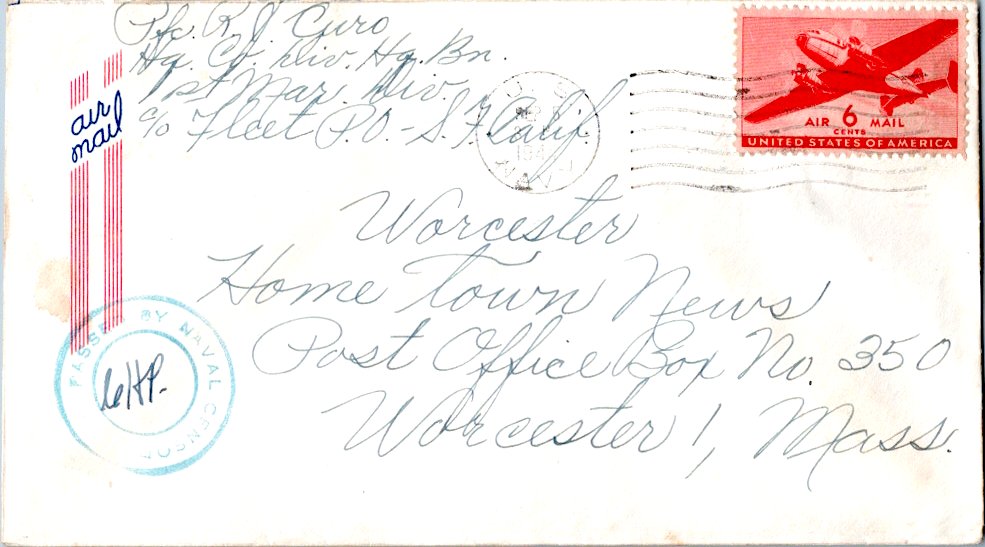 Pfc. R. J. Curo
Hq. Co. Div. Hq. Bn.
1st Mar. Div.
c/o Fleet P.O. - S. F. Calif.
air
mail
AIR 6 MAIL
CENTS
UNITED STATES OF AMERICA
Worcester
Home Town News
Post Office Box No. 350
Worcester 1, Mass.
PASSED BY NAVAL CENSOR